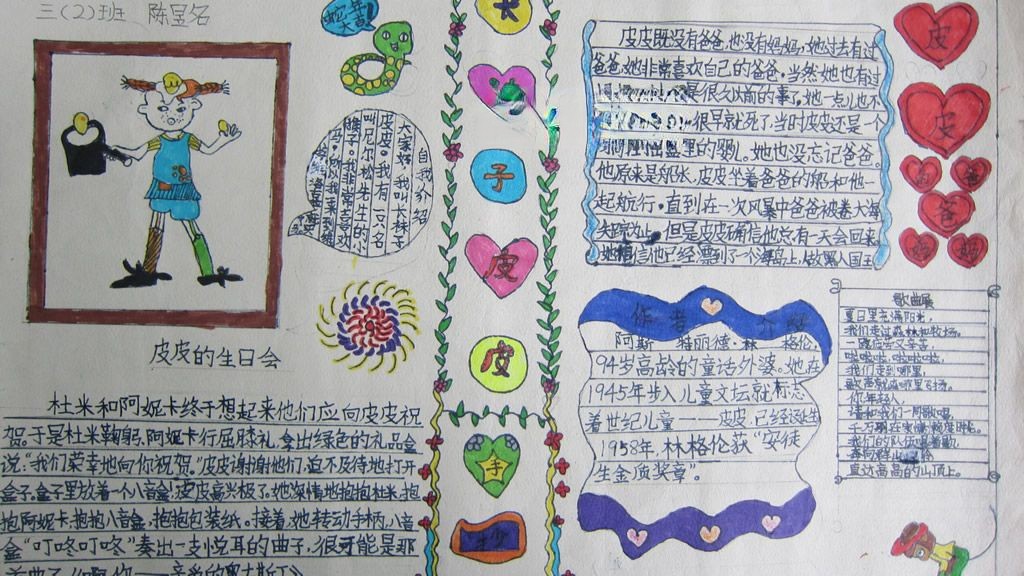 三(2)班 陈昱名
蛇年吉!
自我介绍
大家好,我叫长袜子
皮皮。我有一只名
叫尼尔松先生的小
猴子。我非常喜欢
子
皮
皮
手
抄
皮皮的生日会
杜米和阿妮卡终于想起来他们应向皮皮祝
贺。于是杜米鞠躬,阿妮卡行屈膝礼,拿出绿色的礼品盒
说:“我们荣幸地向你祝贺。”皮皮谢谢他们,迫不及待地打开
盒子,盒子里放着一个八音盒,皮皮高兴极了。她深情地抱抱杜米,抱
抱阿妮卡,抱抱八音盒,抱抱包装纸。接着,她转动手柄,八音
盒“叮咚叮咚”奏出一支悦耳的曲子,很可能是那
皮皮既没有爸爸,也没有妈妈,她过去有过
爸爸,她非常喜欢自己的爸爸。当然她也有过
是很久以前的事了,她一点儿也不
很早就死了,当时皮皮还是一个
里的婴儿。她也没忘记爸爸。
他原来是船长,皮皮坐着爸爸的船和他一
起航行,直到在一次风暴中爸爸被卷大海
失踪为止。但是皮皮确信他总有一天会回来
她相信他已经漂到了一个海岛上,做黑人国王
皮
皮
爸
爸
妈
妈
作者介绍
阿斯特丽德·林格伦
94岁高龄的童话外婆。她在
1945年步入儿童文坛就标志
着世纪儿童——皮皮已经诞生
1958年,林格伦获“安徒
生金质奖章”。
歌曲展
夏日里充满阳光,
我们走过森林和牧场。
啦啦啦,啦啦啦啦,
我们走到哪里,
歌声就在哪里飞扬。
你年轻人,
请和我们一用歌唱,
我们的队伍唱着歌,
直达高高的山顶上。